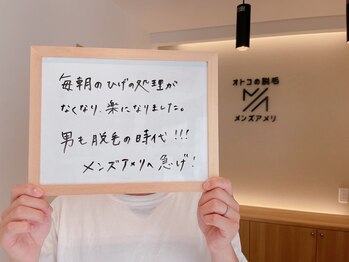 毎朝のひげの処理が
なくなり、楽になりました。
男も脱毛の時代!!!
メンズアメリへ急げ!
オトコの脱毛
メンズアメリ